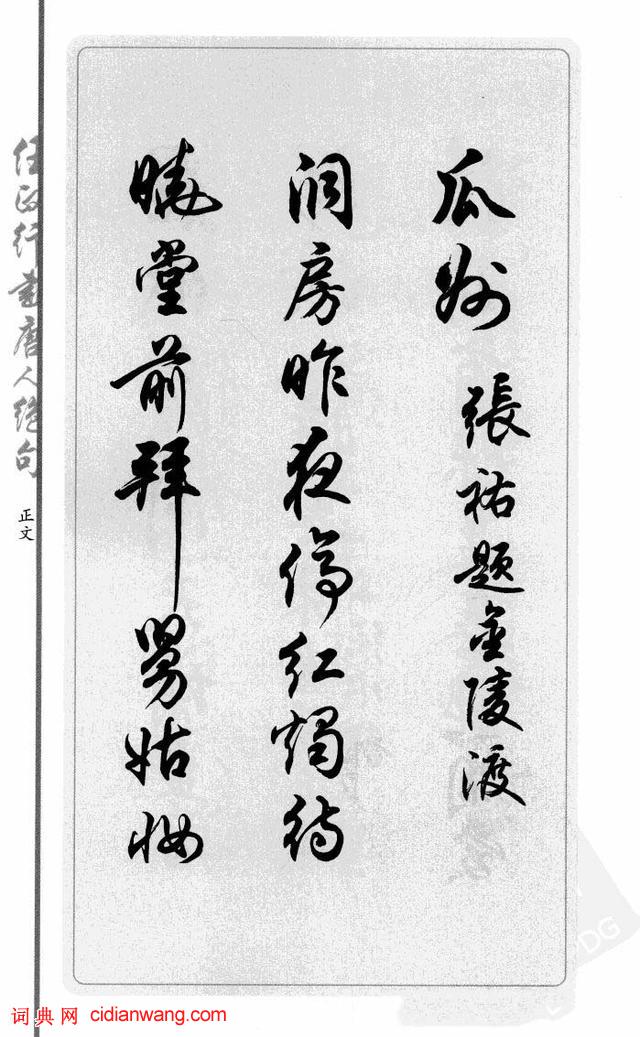 瓜州 張祐题金陵渡
洞房昨夜停红燭待
曉堂前拜舅姑妆
任政行書唐人绝句
正文
词典网 cidianwang.com